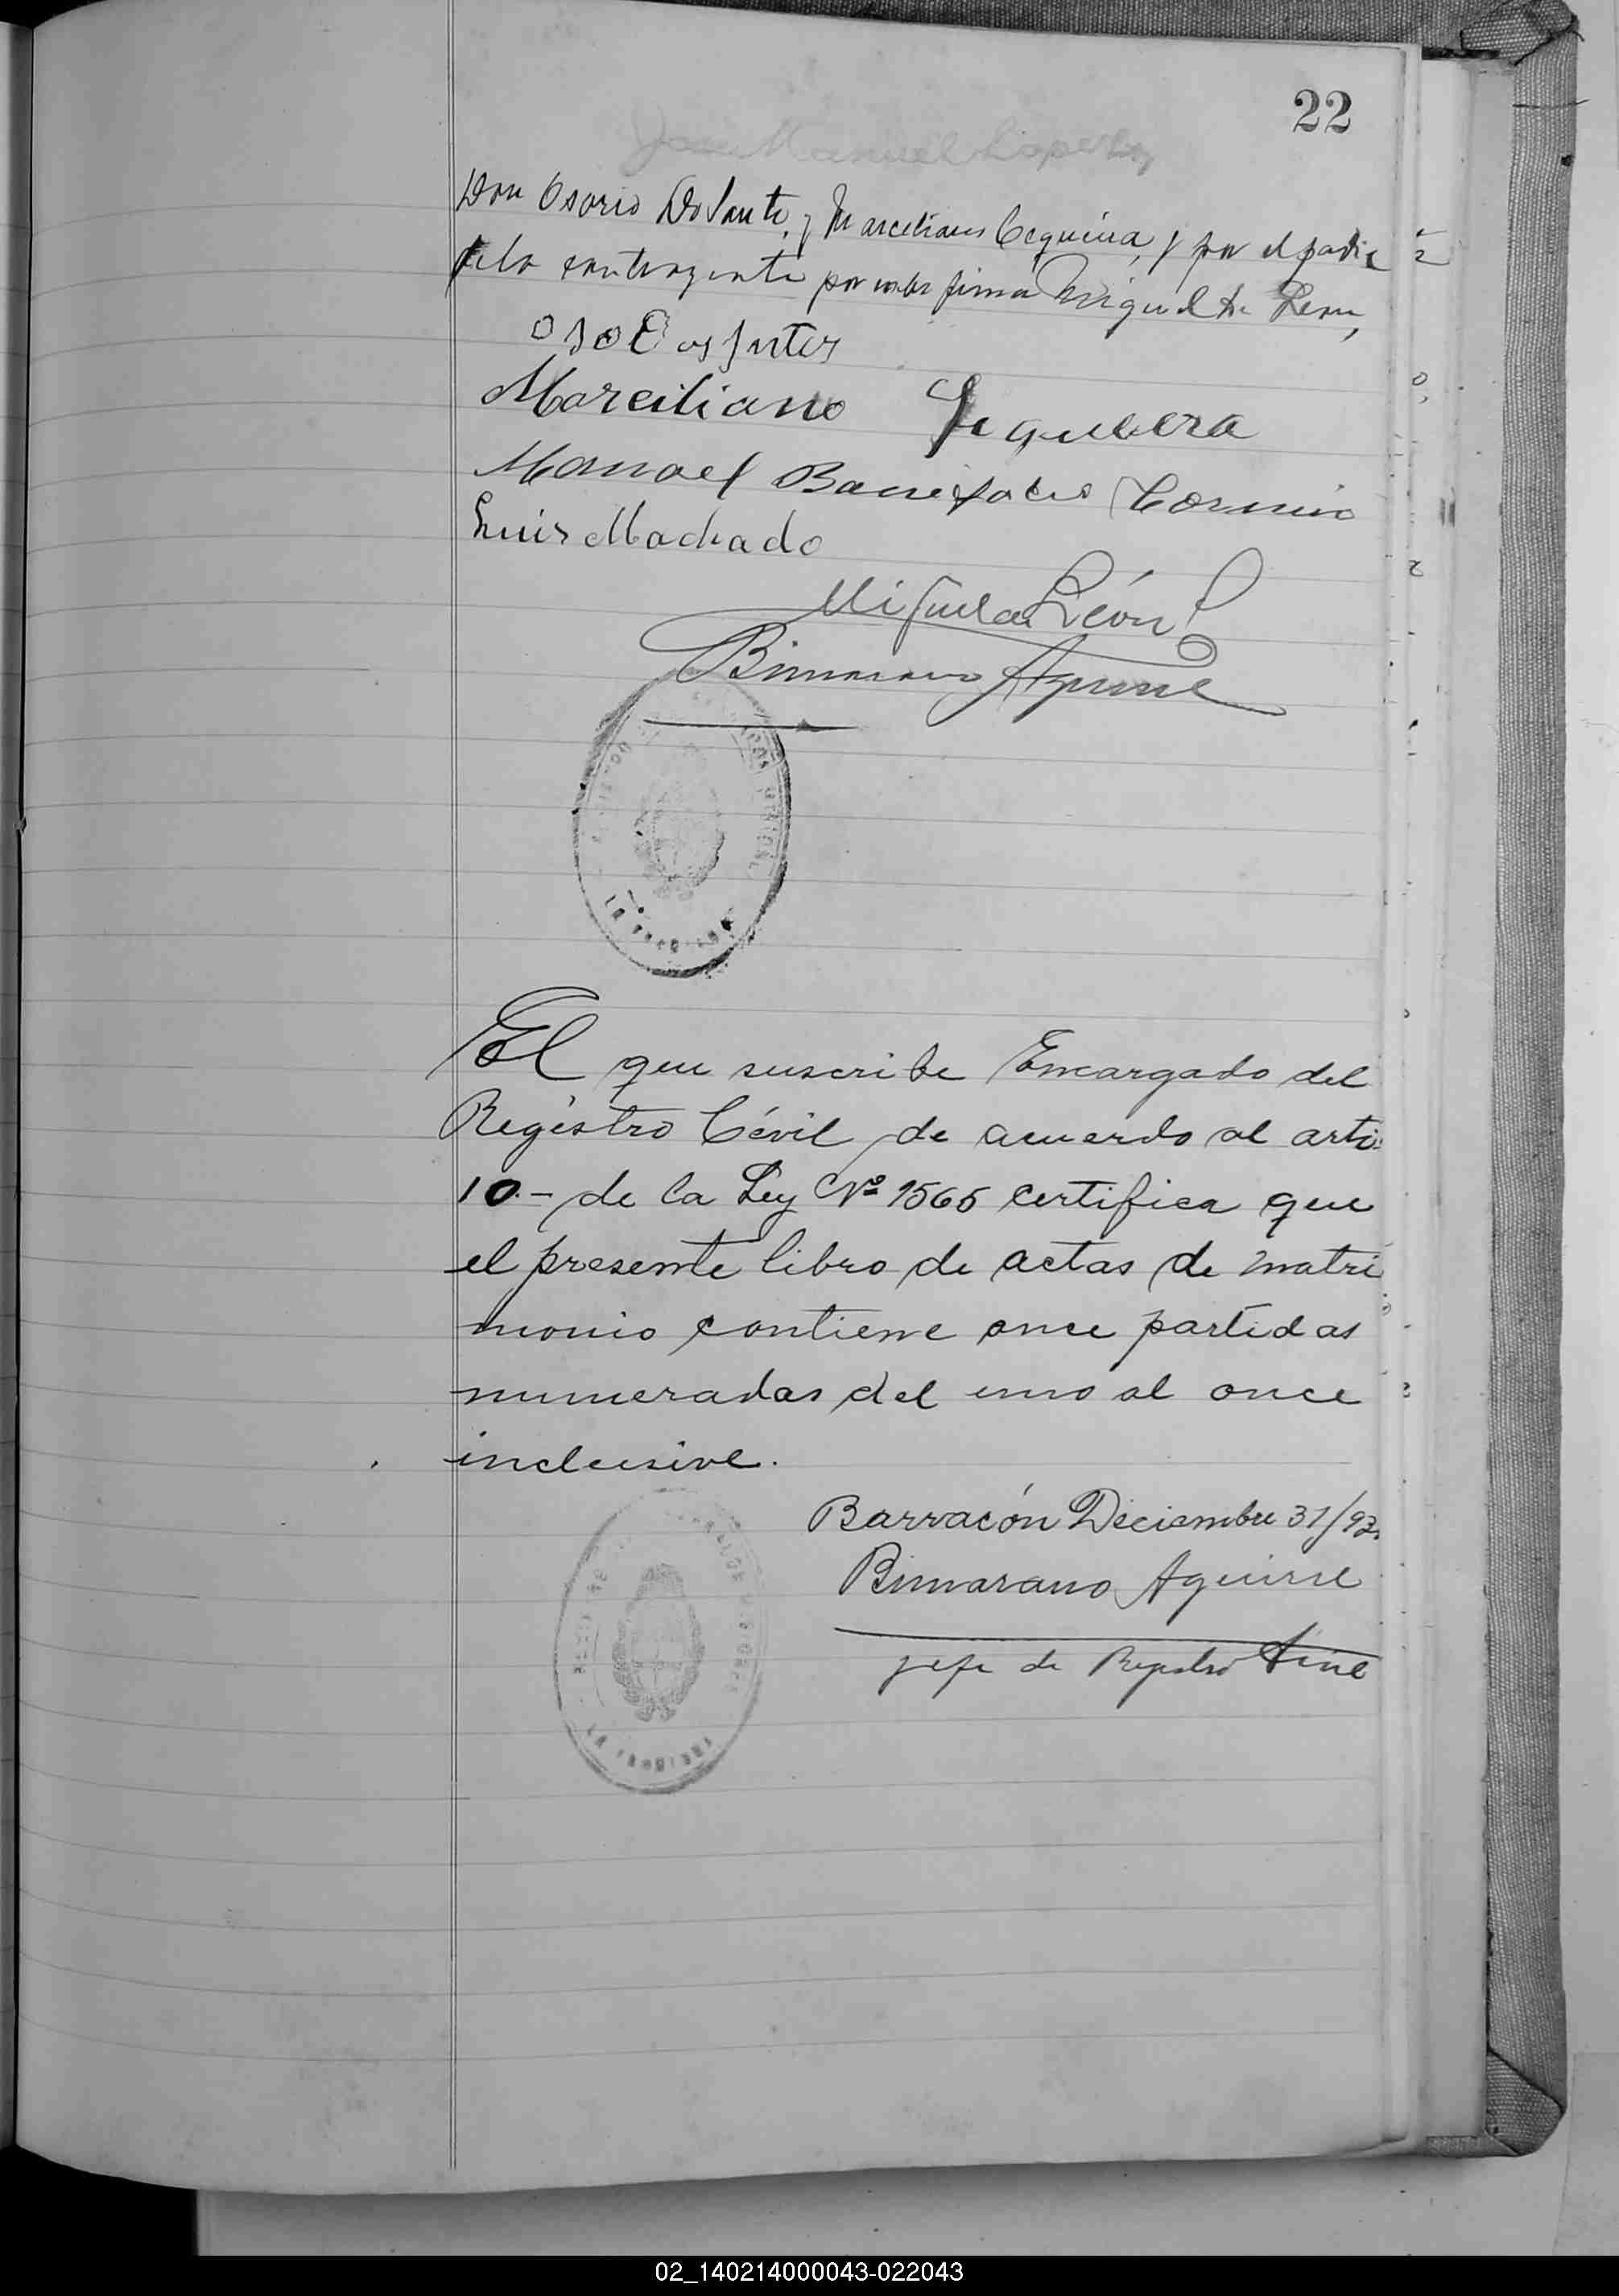 22
Manuel
Don Osorio Do Sante, y Marciliano Cequeira, y por el padre
de la contrayente por no saber firma Miguel de Leon,
Marciliano Sequeira
Manoel Bonifacio
Luis Machado
Miguel de León
Binmarano Aguirre
El que suscribe Encargado del
Registro Cévil de acuerdo al arti:
10.- de la Ley Nº 1565 certifica que
el presente libro de actas de matri
monio contiene once partidas
numeradas del uno al once
inclusive.
Barracón Deciembre 31/93.
Binmarano Aguirre
jefe de Registro Civil
02_140214000043-022043